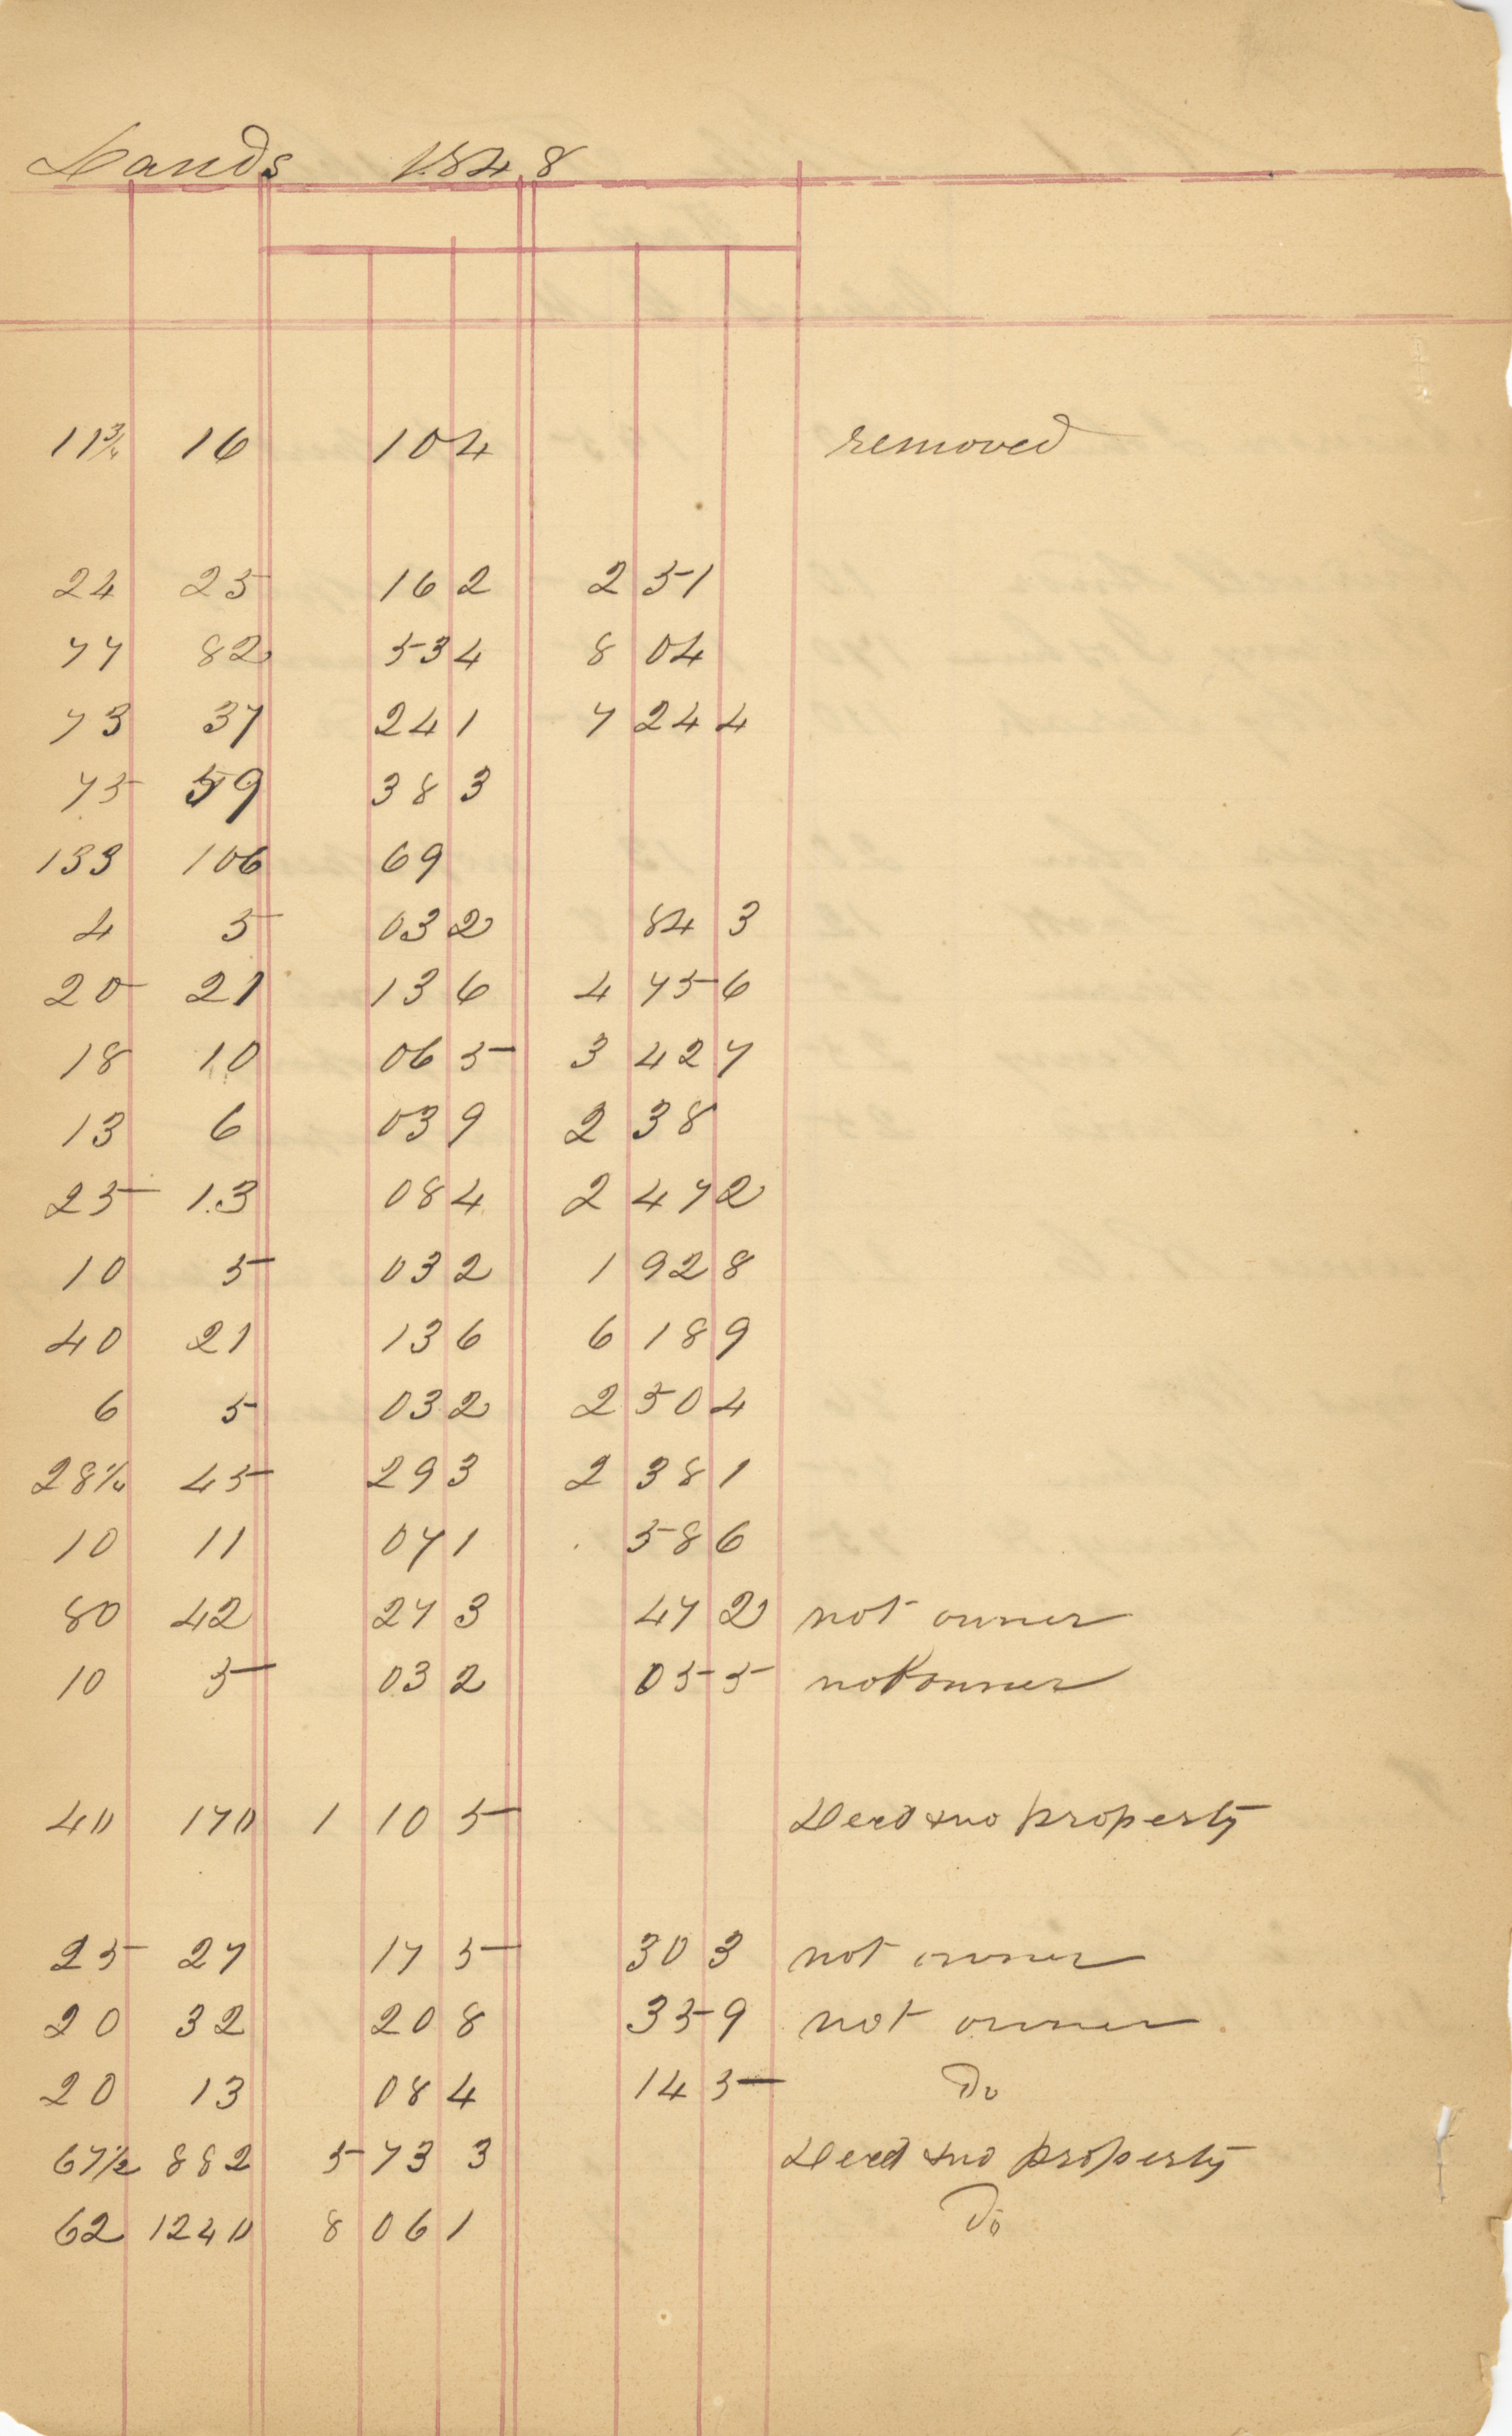 Lands 1848
11 3/4 16 104 removed
24 25 162 2 51
77 82 534 8 04
73 37 241 7 244
75 59 383
133 106 69
4 5 032 843
20 21 136 4 756
18 10 065 3 427
13 6 039 2 38
25 13 084 2 472
10 5 032 1 928
40 21 136 6 189
6 5 032 2 504
28 1/4 45 293 2 381
10 11 071 586
80 42 273 472 not owner
10 5 032 055 not owner
40 170 1 105 Deed & no property
25 27 175 303 not owner
20 32 208 359 not owner
20 13 084 145 Do
67 1/2 882 5 733 Deed & no property
62 1240 8 061 Do